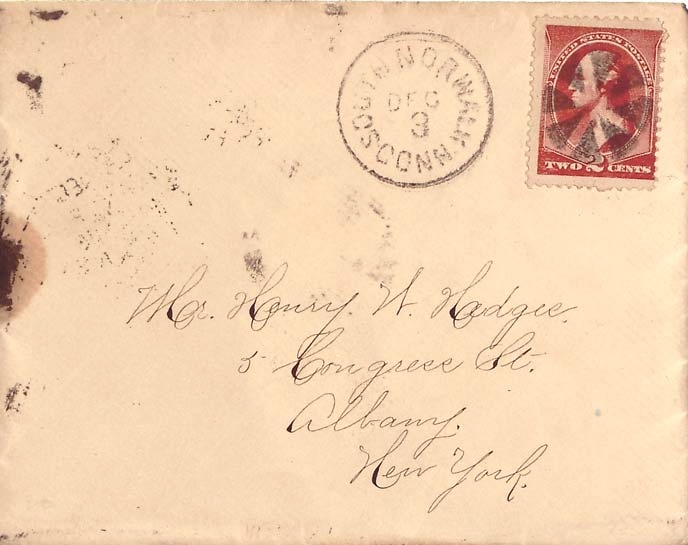 SOUTH NORWALK
DEC
3
CONN
UNITED STATES POSTAGE
TWO 2 CENTS
Mr. Henry W. Hedges.
5 Congress St.
Albany.
New York.